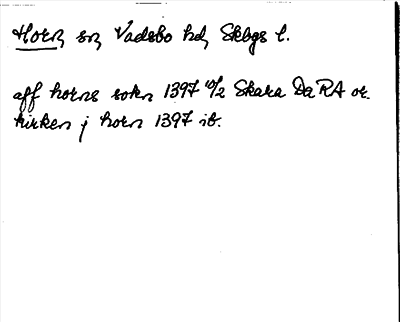 Horn sn Vadsbo hd, Skbgs l.
aff horns sokn 1397 10/2 Skara DaRA or.
kirken j horn 1397 ib.